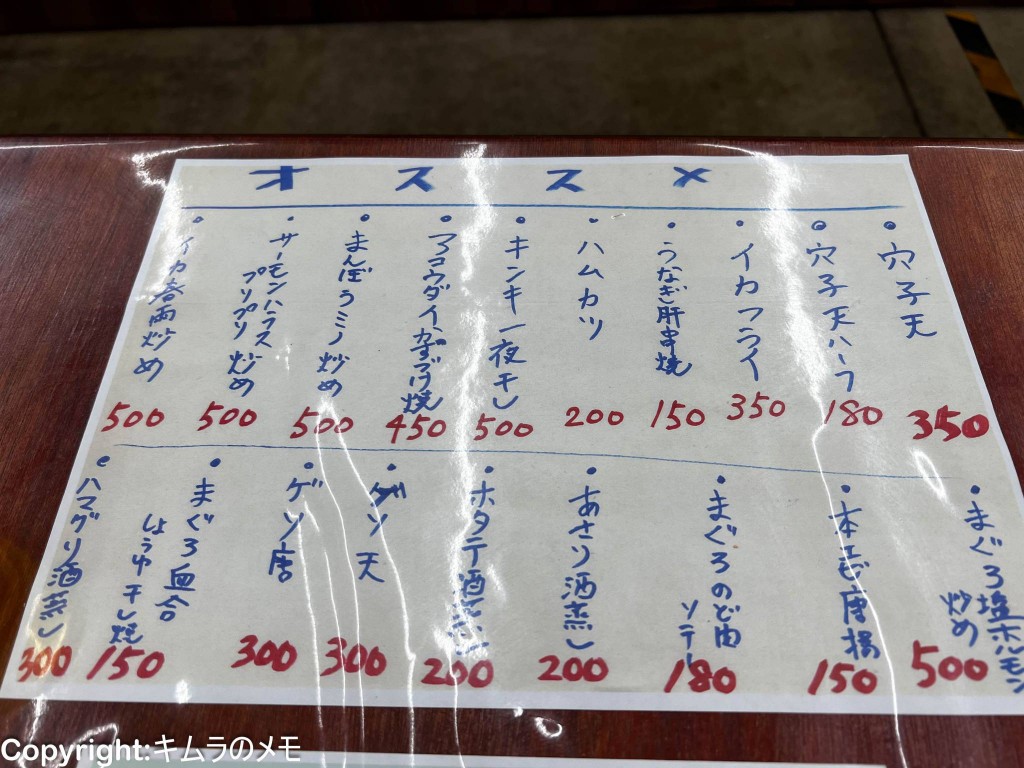 オススメ
穴子天
350
穴子天ハーフ
180
イカフライ
350
うなぎ肝串焼
150
ハムカツ
200
キンキ一夜干し
500
マコウダイかずづけ焼
450
まんぼうミノ炒め
500
サーモンハラス
プリプリ炒め
500
イカ春雨炒め
500
まぐろ塩ホルモン
炒め
500
本エビ唐揚
150
まぐろのど肉
ソテー
180
あさり酒蒸し
200
ホタテ酒蒸し
200
ゲソ天
300
ゲソ唐
300
まぐろ血合
しょうゆ干し焼
150
ハマグリ酒蒸し
300
Copyright:キムラのメモ